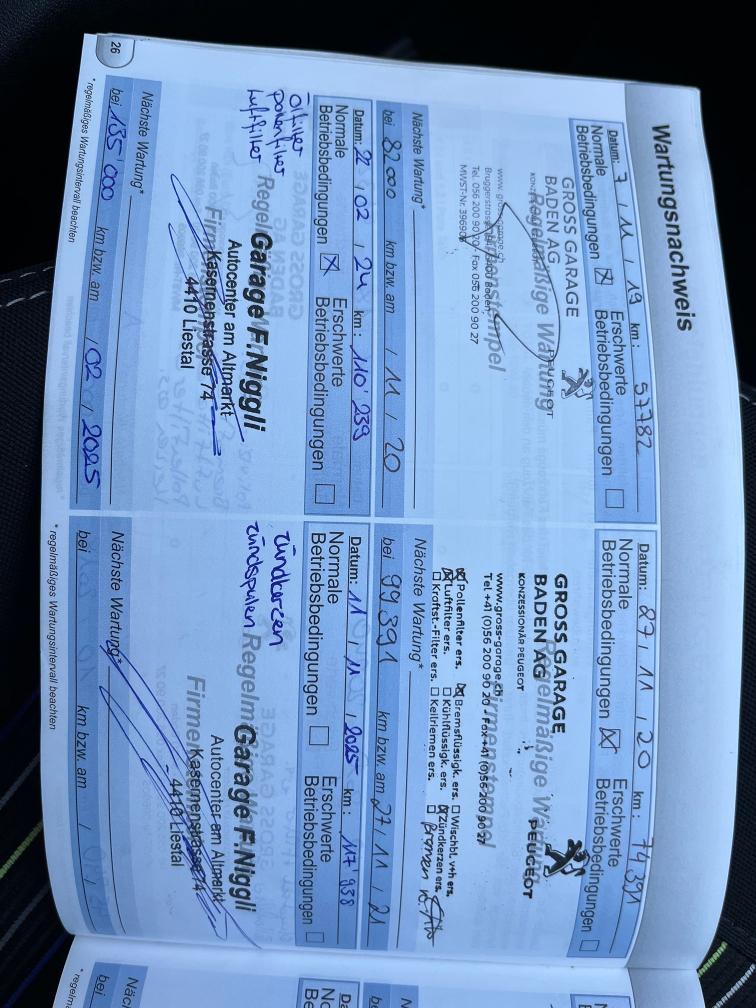 Wartungsnachweis
Datum: 7 / 11 / 19 km: 57782
Normale Betriebsbedingungen ☒ Erschwerte Betriebsbedingungen ☐
GROSS GARAGE
BADEN AG
PEUGEOT
Regelmäßige Wartung
Firmenstempel
www.gross-garage.ch
Tel. 056 200 90 20 / Fax 056 200 90 27
Nächste Wartung*
bei 82000 km bzw. am / 11 / 20
Datum: 27 / 11 / 20 km: 74391
Normale Betriebsbedingungen ☒ Erschwerte Betriebsbedingungen ☐
GROSS GARAGE
BADEN AG
KONZESSIONÄR PEUGEOT
PEUGEOT
Regelmäßige Wartung
Firmenstempel
www.gross-garage.ch
Tel +41 (0)56 200 90 20 - Fax +41 (0)56 200 90 27
☒ Pollenfilter ers. ☒ Bremsflüssigk. ers. ☐ Wischbl. v+h ers.
☒ Luftfilter ers. ☐ Kühlflüssigk. ers. ☒ Zündkerzen ers.
☐ Kraftst.-Filter ers. ☐ Keilriemen ers. ☐ Bremsen
Nächste Wartung*
bei 99391 km bzw. am 27 / 11 / 21
Datum: 22 / 02 / 24 km: 110'239
Normale Betriebsbedingungen ☒ Erschwerte Betriebsbedingungen ☐
Ölfilter
pollenfilter
Luftfilter
Garage F.Niggli
Autocenter am Altmarkt
Kasernenstrasse 74
4410 Liestal
Nächste Wartung*
bei 135'000 km bzw. am / 02 / 2025
* regelmäßiges Wartungsintervall beachten
Datum: 11 / 11 / 2025 km: 117'938
Normale Betriebsbedingungen ☐ Erschwerte Betriebsbedingungen ☐
Zündkerzen
Zündspulen
Garage F.Niggli
Autocenter am Altmarkt
Kasernenstrasse 74
4410 Liestal
Nächste Wartung*
bei km bzw. am / /
* regelmäßiges Wartungsintervall beachten
26